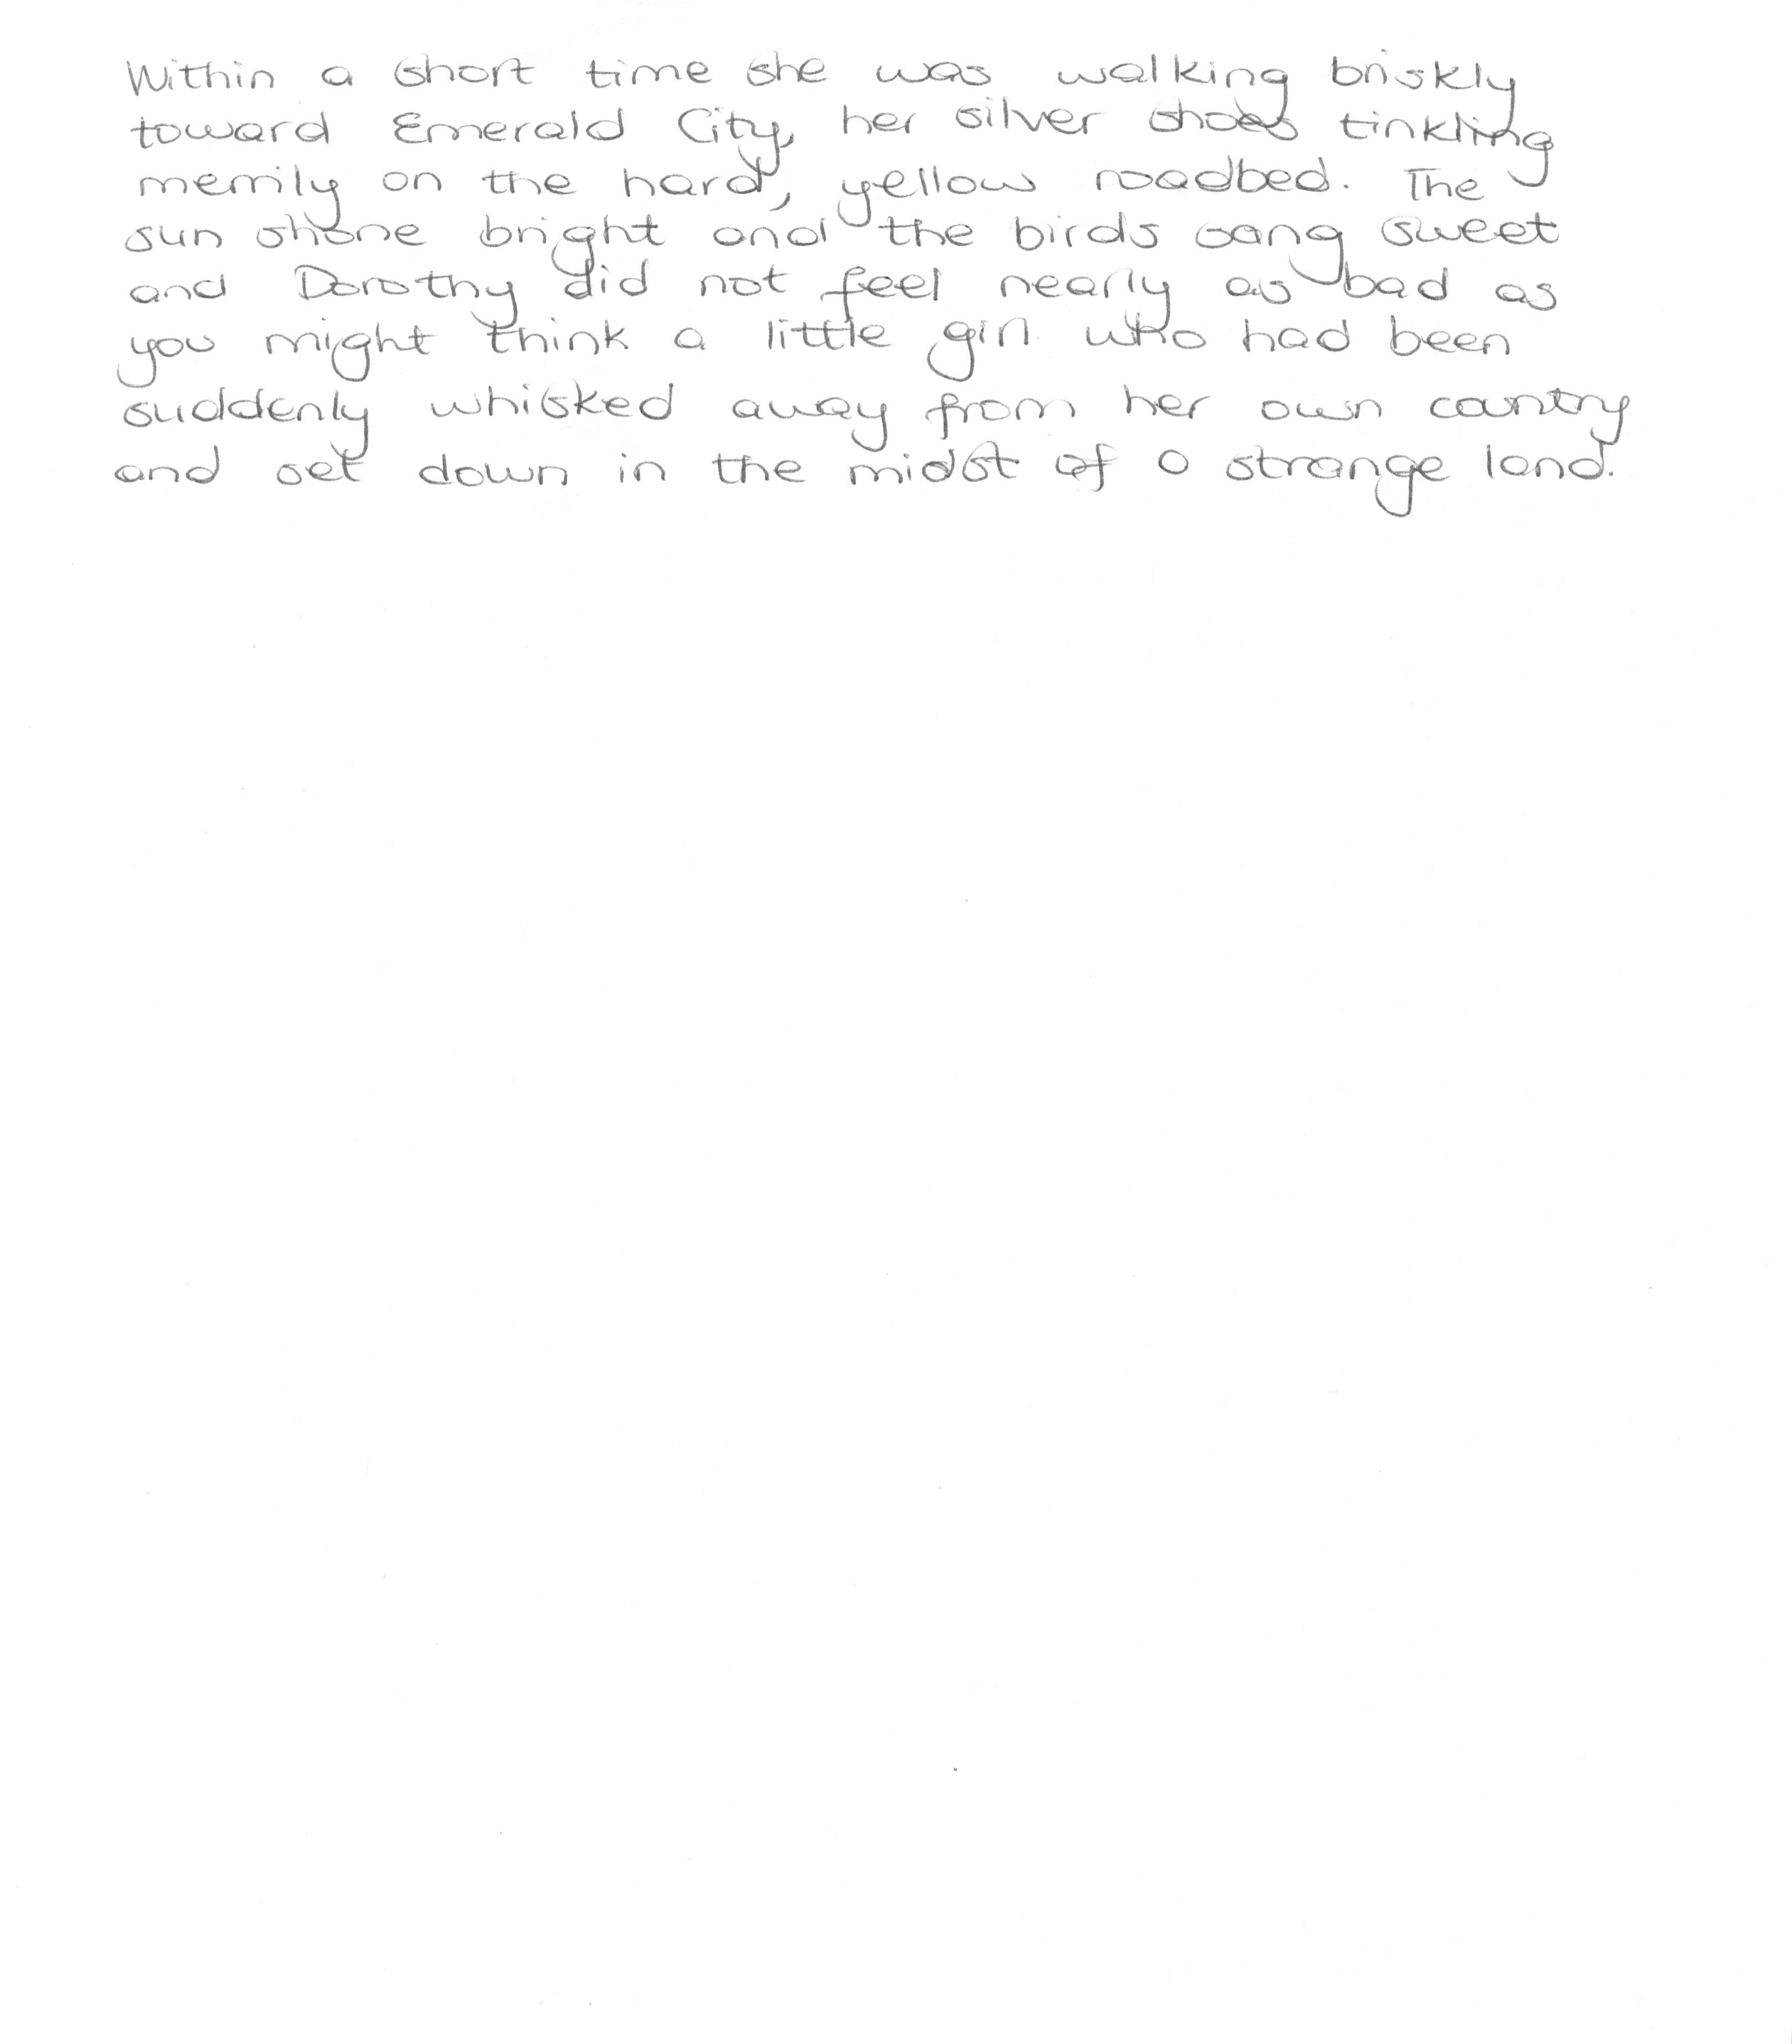 Within a short time she was walking briskly
toward Emerald City, her silver shoes tinkling
merrily on the hard, yellow roadbed. The
sun shone bright and the birds sang sweet
and Dorothy did not feel nearly as bad as
you might think a little girl who had been
suddenly whisked away from her own country
and set down in the midst of a strange land.